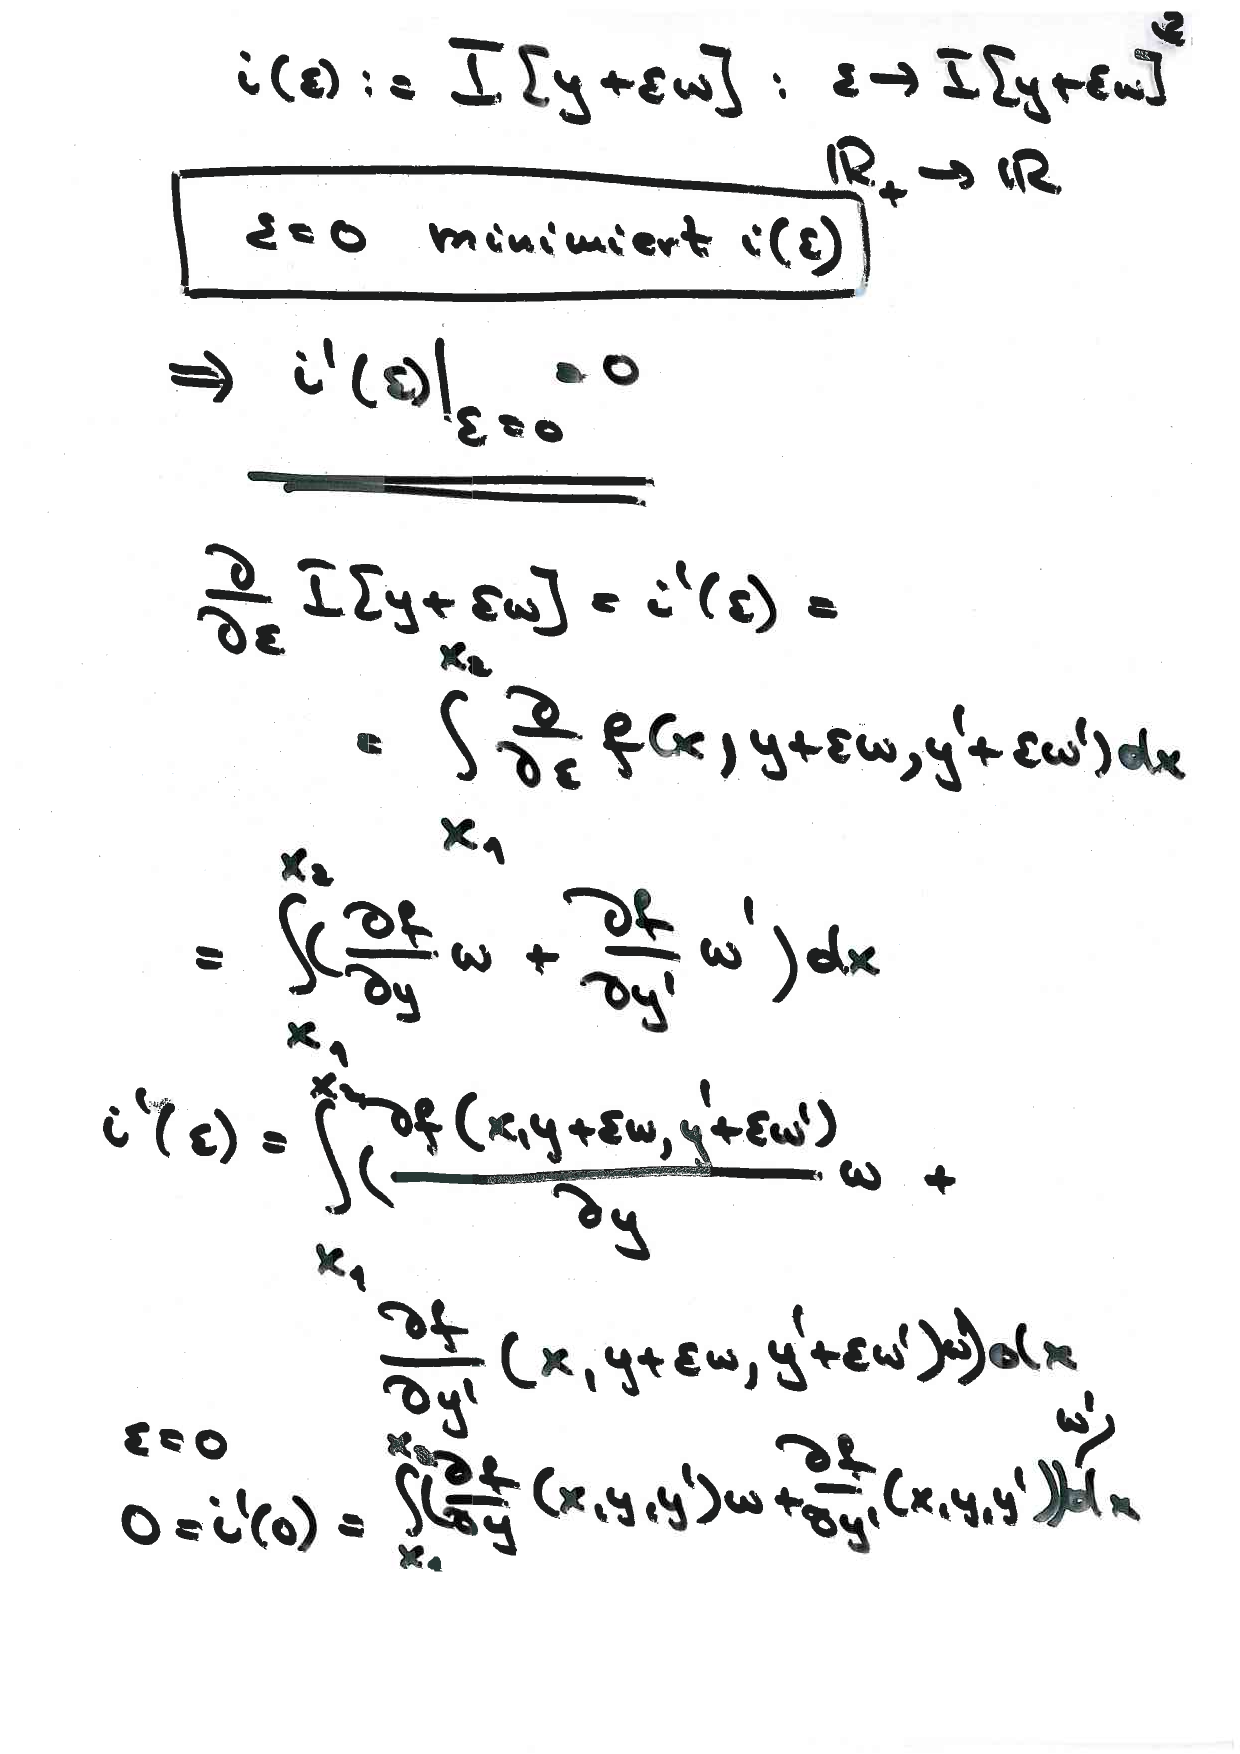 2
i(ε) := I[y+εω] : ε → I[y+εω]
ℝ₊ → ℝ
ε=0 minimiert i(ε)
⇒ i'(ε)|_{ε=0} = 0
∂/∂ε I[y+εω] = i'(ε) =
= ∫_{x₁}^{x₂} ∂/∂ε f(x, y+εω, y'+εω')dx
= ∫_{x₁}^{x₂} (∂f/∂y ω + ∂f/∂y' ω')dx
i'(ε) = ∫_{x₁}^{x₂} (∂f(x,y+εω,y'+εω')/∂y ω +
∂f/∂y' (x, y+εω, y'+εω')ω')dx
ε=0
0=i'(0) = ∫_{x₁}^{x₂} (∂f/∂y (x,y,y')ω + ∂f/∂y' (x,y,y')ω')dx